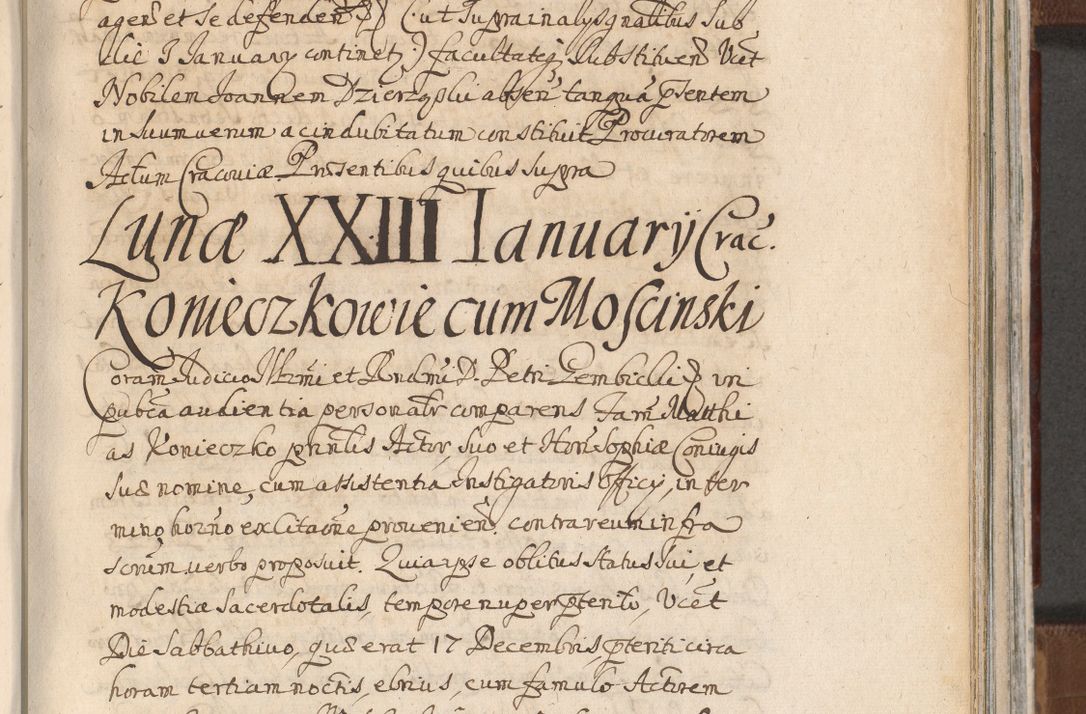 agen̄ et se defenden̄ (: ut supra in alys gnãlibus sub
die 3 January continetʒ :) facultateqʒ substituen̄ Vcet
Nobilem Joannem absen̄ tanquã pñtentem
in suum verum ac indubitatum constituit Procuratorem
Actum Cracoviæ Præsentibus quibus supra
Lunæ XXIII Ianuarÿ Crac.
Konieczkowie cum Moscinski
Coram Judicio Illr̃mi et Rndm̃i D. Petri Gembicki in
pub̃ca audientia personalr̃ comparens Matthi
as Konieczko prñlis Actor, suo et Hon̄ Sophiæ Coniugis
suæ nomine, cum assistentia Instigatoris Officy, in ter
mino hor̃no ex citaõne provenien̄. contra reum infra
scrũm verbo proposuit. Quia ipse oblitus status sui, et
modestiæ sacerdotalis, tempore nuper pterito, Vcet
Die Sabbathivo, quæ erat 17 Decembris, pteriti circa
horam tertiam noctis, ebrius, cum famulo Actorem